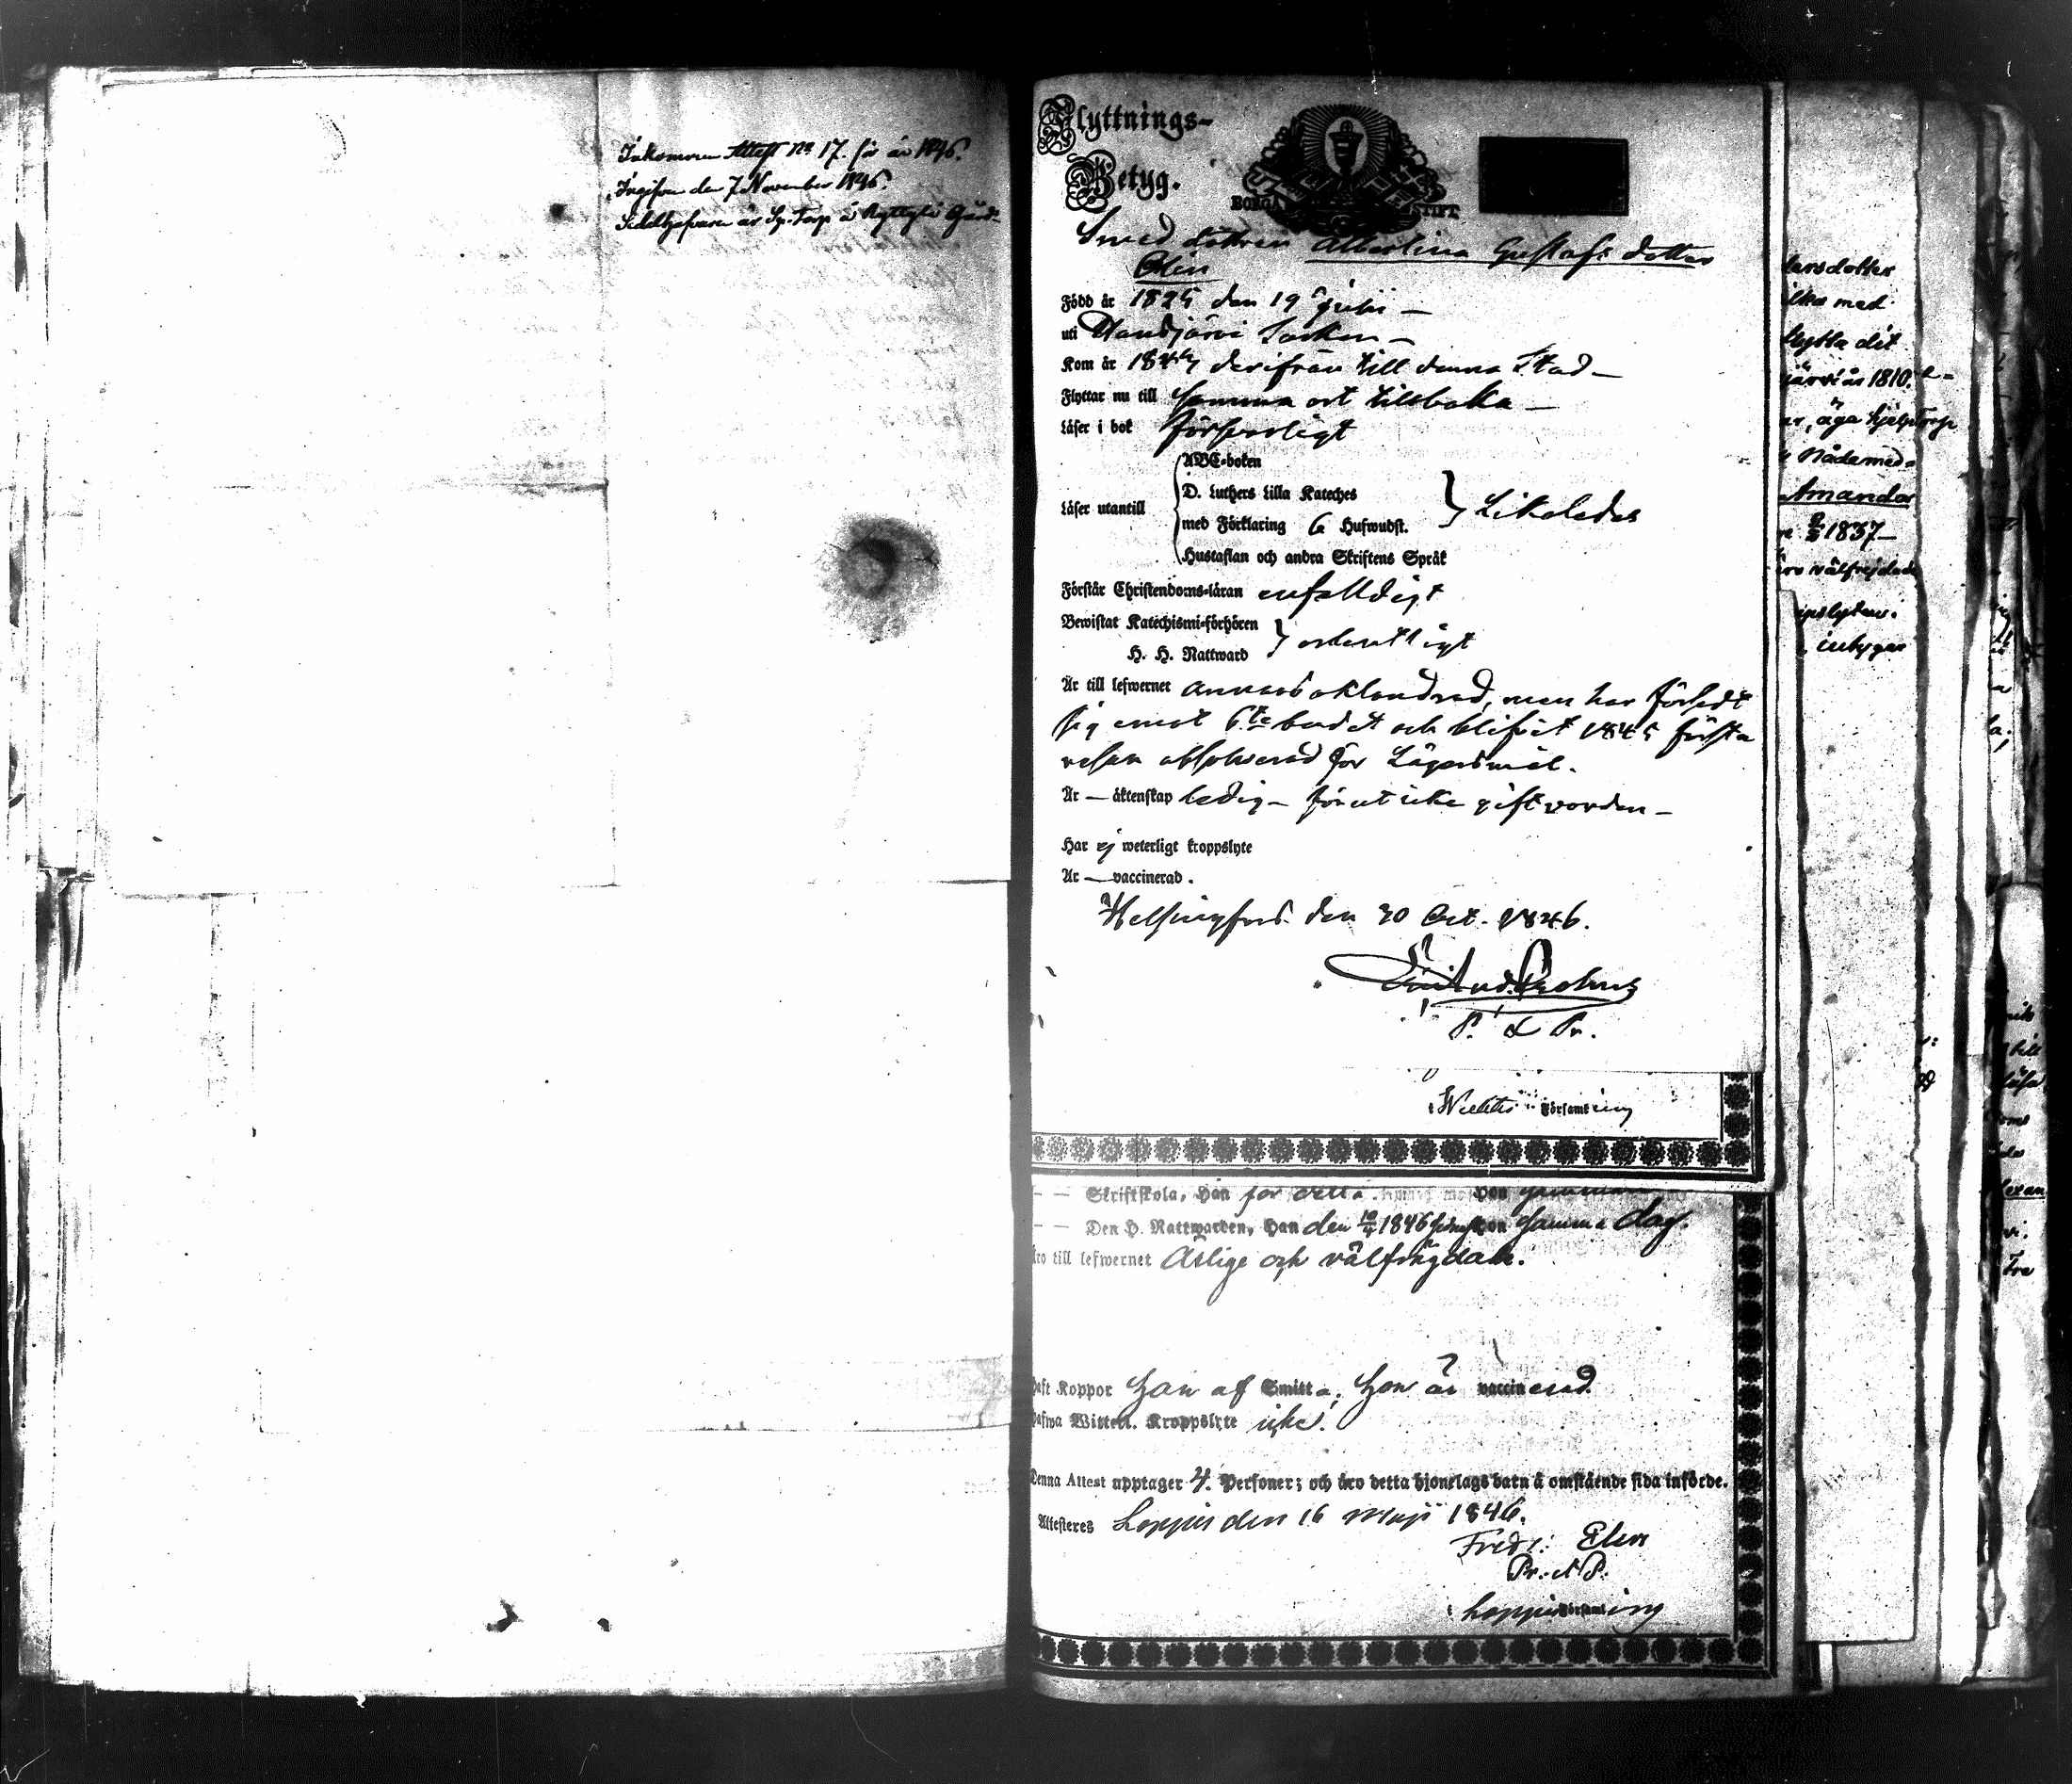 Inkommen Attest No 17. för år 1846.
Ingifven den 7 November 1846.
Sedelhafvaren är Sp. Torp å Gård
Flyttnings-
Betyg.
BORGÅ STIFT
Smed dottren Albertina Gustafs dotter
Olin
Född år 1825 den 19 Julii —
uti Nandjärvi Socken —
Kom år 1844 derifrån till denna Stad —
Flyttar nu till samma ort tillbaka —
Läser i bok försvarligt
ABC-boken
D. Luthers Lilla Kateches
Läser utantill med Förklaring 6 Hufwudst. Likaledes
Hustaflan och andra Skriftens Språk
Förstår Christendoms-läran enfaldigt
Bewistat Katechismi-förhören
H. H. Nattward ordentligt
Är till lefwernet annars oklandrad, men har försedt
sig emot 6te budet och blifvit 1845 första
resan absolverad för Lägersmål.
Är — äktenskap ledig — förut icke gift vorden —
Har ej weterligt kroppslyte
Är — vaccinerad.
Helsingfors den 30 Oct. 1846.
Församling
— — Skriftskola, Han för detta. Hon
— — Den H. Nattwarden, Han den 1846 Hon samma dag.
Äro till lefwernet Ärlige och välfrägdade.
Haft Koppor Han af Smitta, Hon är vaccinerad.
Hafwa Witterl. Kroppslyte icke.
Denna Attest upptager 4. Personer; och äro detta hjonelags barn å omstående sida införde.
Attesteres Loppis den 16 Maji 1846.
Fredr: Elen
Pr. & P.
i Loppis Församling
dersdotter
ilka med
flytta dit
järvi år 1810.
ar, äga hjelptorp
Nådemed-
Amanda
1837 —
äro välfrejdade
opslyten.
inbygar